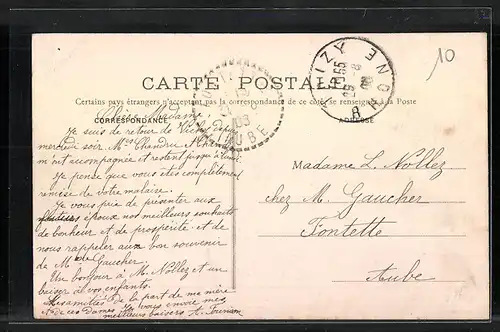 10
CARTE POSTALE
Certains pays étrangers n'acceptent pas la correspondance de ce côté se renseigner à la Poste
CORRESPONDANCE
ADRESSE
AIZY
YONNE
AUBE
08
Chère Madame,
Je suis de retour de Vichy depuis
mercredi soir. Mes
m'ont accompagnée et restent jusqu'à
Je pense que vous êtes complètement
remise de votre malaise.
Je vous prie de présenter aux
époux nos meilleurs souhaits
de bonheur et de prospérité. et de
nous rappeler aux bon souvenir
de M. Gaucher.
Un bonjour à M. Nollez et un
baiser à vos enfants.
Mes amitiés de la part de ma mère
et de ces dames. Je vous envoie mes
meilleurs baisers
Madame L. Nollez
chez M. Gaucher
Fontette
Aube